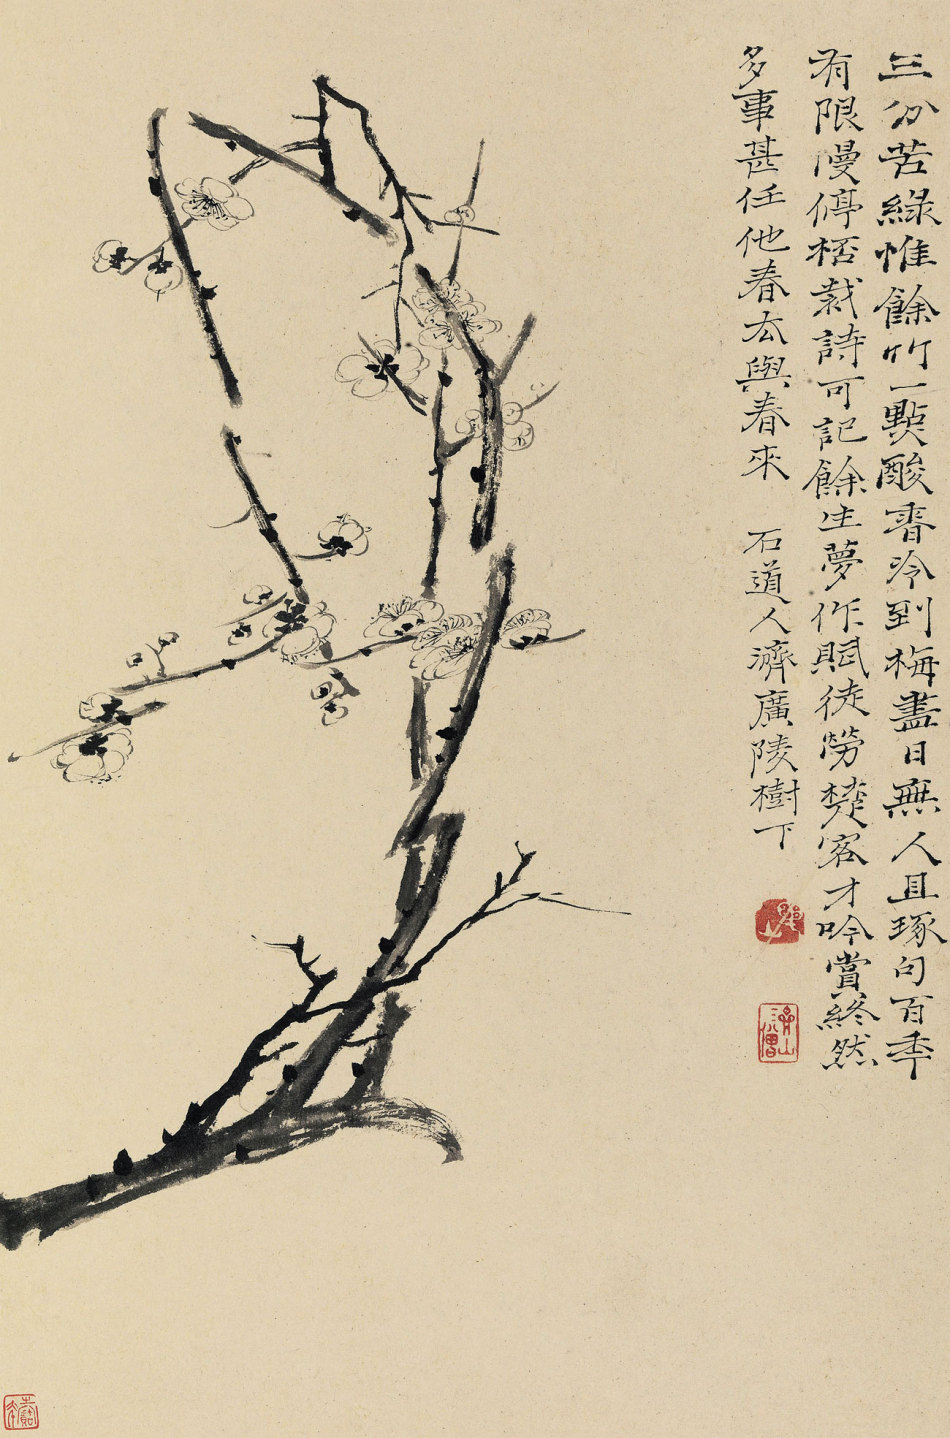 三分苦綠惟餘竹一點酸香冷到梅盡日無人且琢句百年
有限慢停桮裁詩可記餘生夢作賦徒勞楚客才吟賞終然
多事甚任他春去與春來 石道人濟廣陵樹下